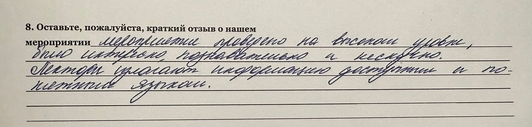 8. Оставьте, пожалуйста, краткий отзыв о нашем
мероприятии мероприятие проведено на высоком уровне,
было интересно, познавательно и нескучно.
Лекторы излагают информацию доступным и по-
нятным языком.